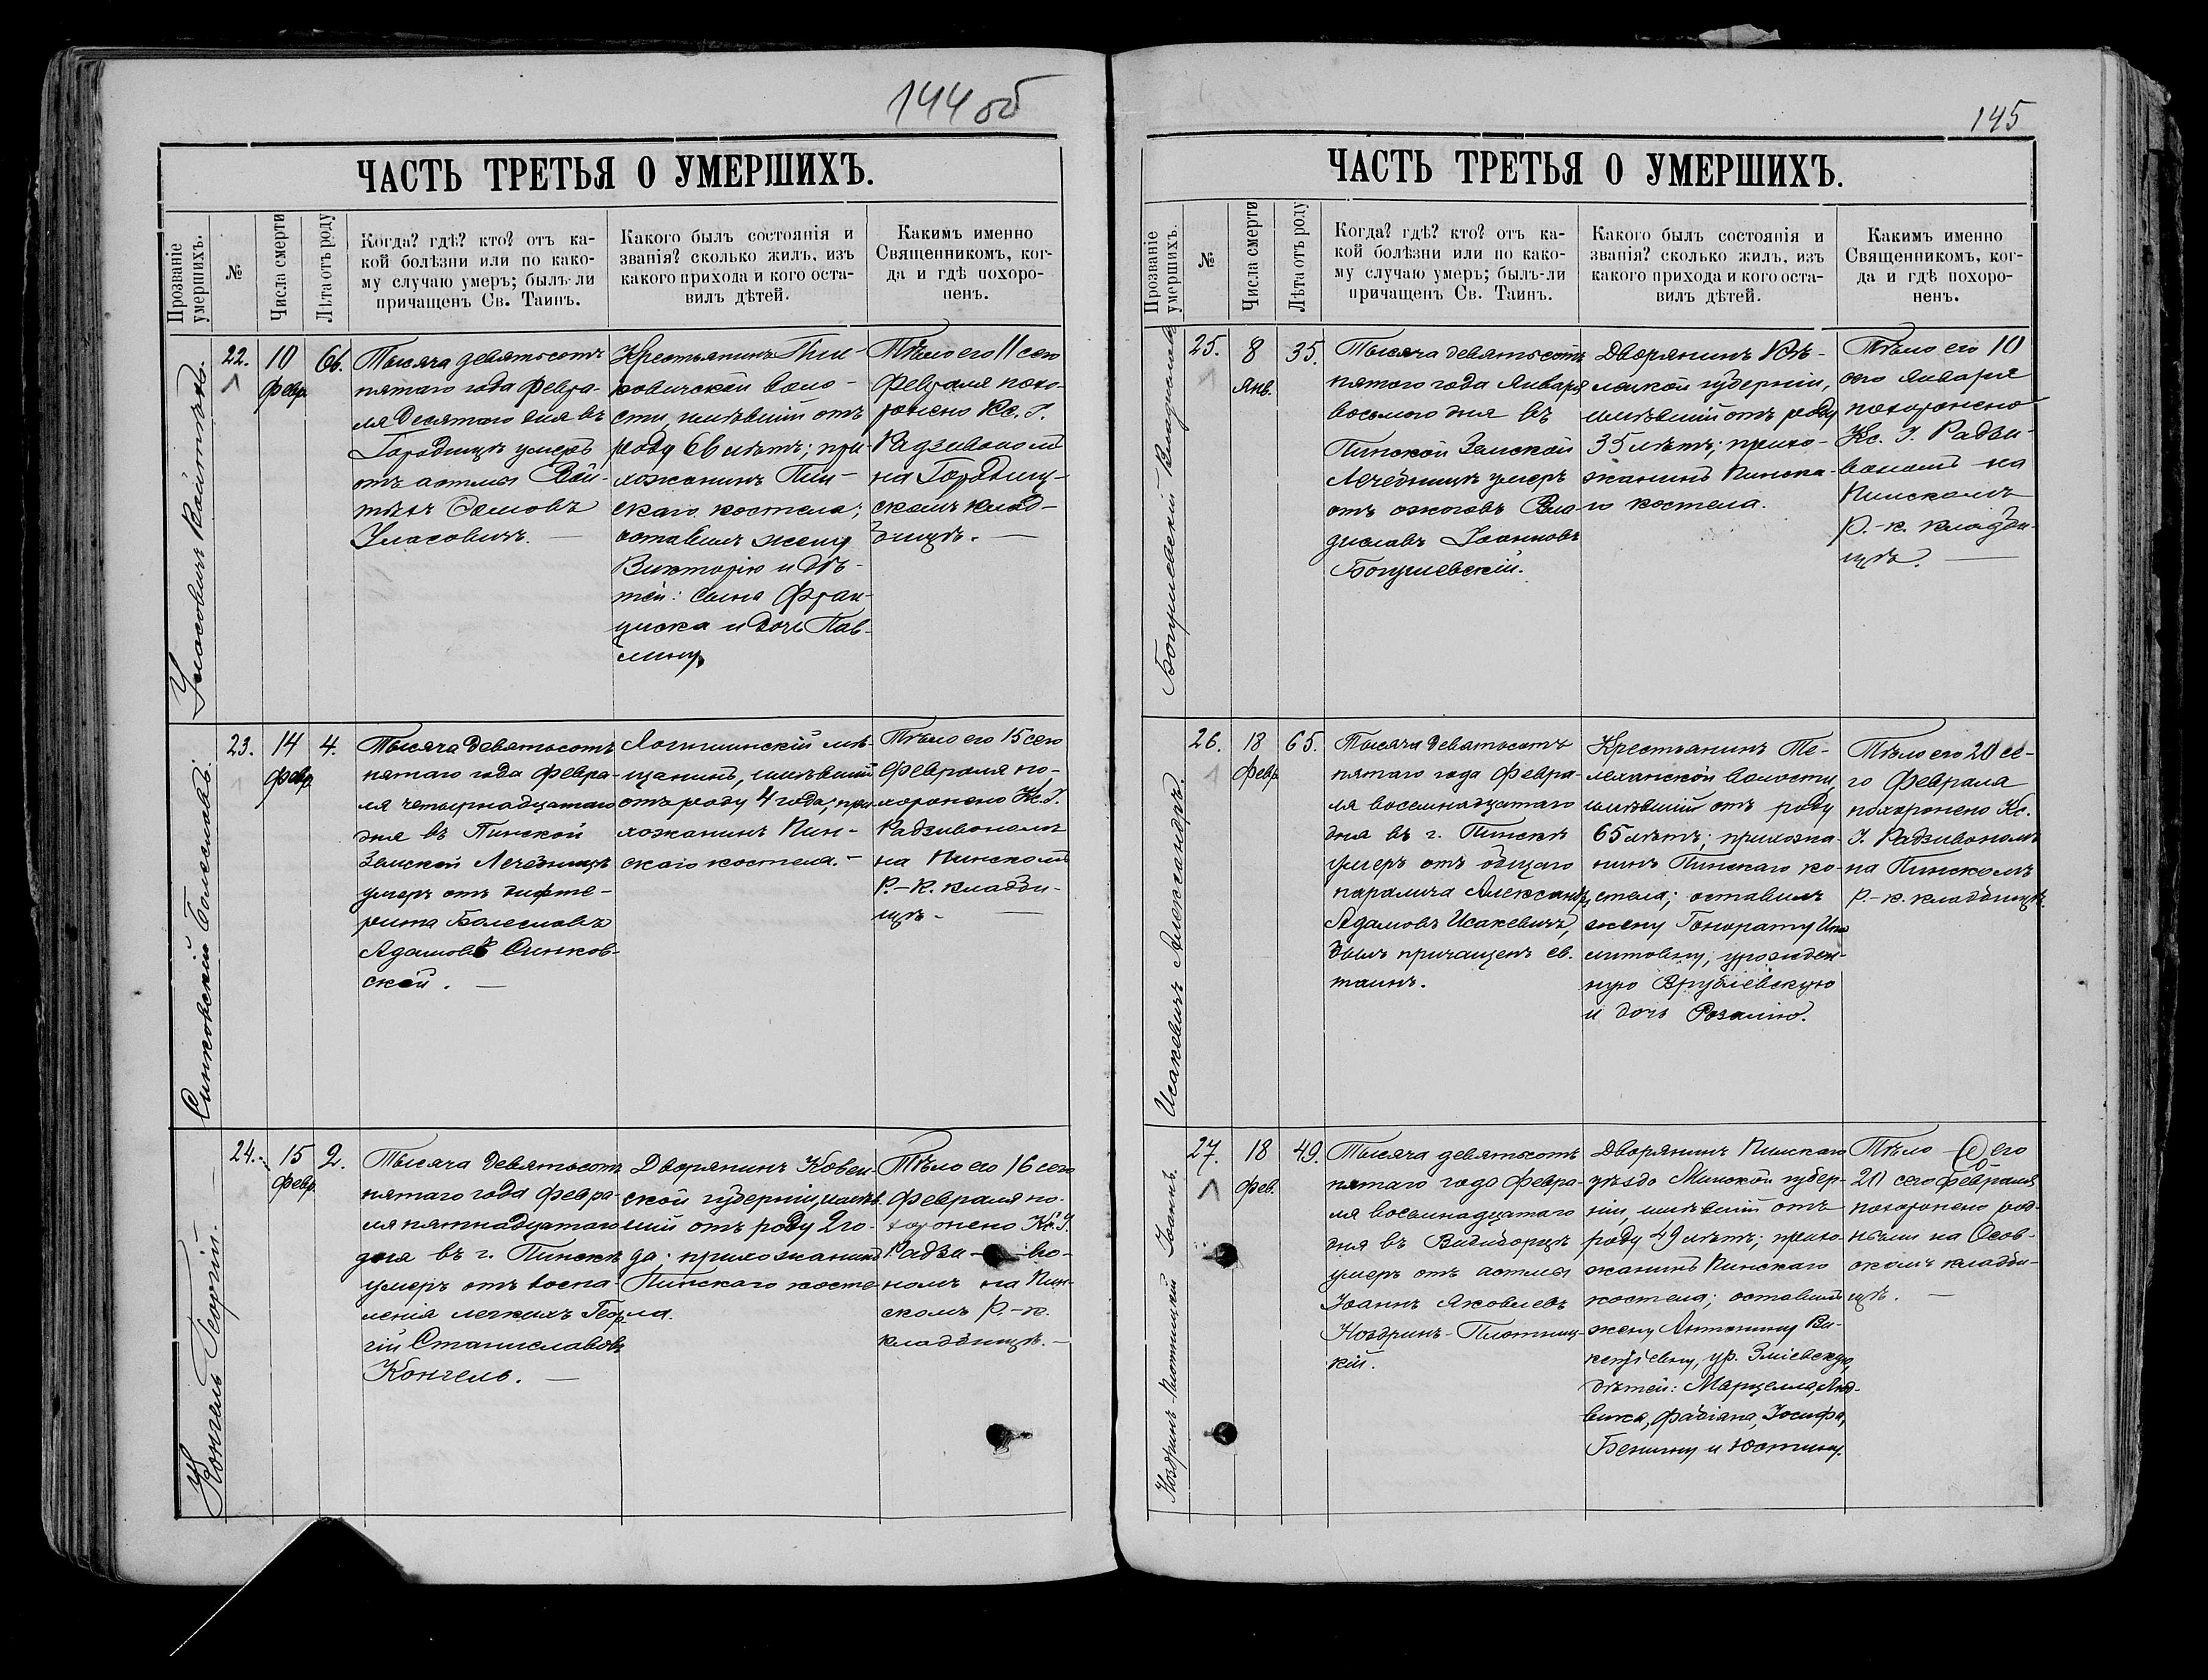 144 об
ЧАСТЬ ТРЕТЬЯ О УМЕРШИХЪ.
Прозваніе умершихъ.
№
Числа смерти
Лѣта отъ роду
Когда? гдѣ? кто? отъ ка-
кой болѣзни или по како-
му случаю умеръ; былъ-ли
причащенъ Св. Таинъ.
Какого былъ состоянія и
званія? сколько жилъ, изъ
какого прихода и кого оста-
вилъ дѣтей.
Какимъ именно
Священникомъ, ког-
да и гдѣ похоро-
ненъ.
Уласовичъ Войтѣхъ.
22.
10
Февр.
66.
Тысяча девятьсотъ
пятаго года Февра-
ля десятаго дня въ
Городищѣ умеръ
отъ астмы Вой-
тѣхъ
Уласовичъ. —
Крестьянинъ
ковичской воло-
сти, имѣвшій отъ
роду 66 лѣтъ; при-
хожанинъ Пин-
скаго костела;
оставилъ жену
Викторію и дѣ-
тей: сына Фран-
циска и дочь Пав-
лину
Тѣло его 11 сего
Февраля похо-
ронено Кс. І.
Радзивономъ
на Городищ-
скомъ клад-
бищѣ. —
Синковскій Болеславъ.
23.
14
Февр.
4.
Тысяча девятьсотъ
пятаго года Февра-
ля четырнадцатаго
дня въ Пинской
Земской Лечебницѣ
умеръ отъ дифте-
рита Болеславъ
Адамовъ Синков-
скій. —
Логишинскій мѣ-
щанинъ, имѣвшій
отъ роду 4 года; при-
хожанинъ Пин-
скаго костела. —
Тѣло его 15 сего
Февраля по-
хоронено Кс. І.
Радзивономъ
на Пинскомъ
Р.-К. кладби-
щѣ. —
Конгель Георгій.
24.
15
Февр.
2.
Тысяча девятьсотъ
пятаго года Февра-
ля пятнадцатаго
дня въ г. Пинскѣ
умеръ отъ воспа-
ленія легкихъ Геор-
гій Станиславовъ
Конгель. —
Дворянинъ Ковен-
ской губерніи, имѣв-
шій отъ роду 2 го-
да; прихожанинъ
Пинскаго косте-
ла.
Тѣло его 16 сего
Февраля по-
хоронено Кс. І.
Радзи-во-
номъ на Пин-
скомъ Р.-К.
кладбищѣ. —
145
ЧАСТЬ ТРЕТЬЯ О УМЕРШИХЪ.
Прозваніе умершихъ.
№
Числа смерти
Лѣта отъ роду
Когда? гдѣ? кто? отъ ка-
кой болѣзни или по како-
му случаю умеръ; былъ-ли
причащенъ Св. Таинъ.
Какого былъ состоянія и
званія? сколько жилъ, изъ
какого прихода и кого оста-
вилъ дѣтей.
Какимъ именно
Священникомъ, ког-
да и гдѣ похоро-
ненъ.
Владиславъ
25.
8
Янв.
35.
Тысяча девятьсотъ
пятаго года Января
восьмого дня въ
Пинской Земской
Лечебницѣ умеръ
отъ ожоговъ Вла-
диславъ Іоанновъ
Дворянинъ Кѣ-
лецкой губерніи,
имѣвшій отъ роду
35 лѣтъ; прихо-
жанинъ Пинска-
го костела.
Тѣло его 10
сего Января
похоронено
Кс. І. Радзи-
вономъ на
Пинскомъ
Р.-к. кладби-
щѣ. —
Исакевичъ Александръ.
26.
18
Февр.
65.
Тысяча девятьсотъ
пятаго года Февра-
ля восемнадцатаго
дня въ г. Пинскѣ
умеръ отъ общаго
паралича Александръ
Адамовъ Исакевичъ,
былъ причащенъ св.
таинъ.
Крестьянинъ Те-
леханской волости,
имѣвшій отъ роду
65 лѣтъ; прихожа-
нинъ Пинскаго ко-
стела; оставилъ
жену Гонорату
урожден-
ную Врублевскую
и дочь Розалію.
Тѣло его 20 се-
го Февраля
похоронено Кс.
І. Радзивономъ
на Пинскомъ
Р.-к. кладбищѣ.
Ноздринъ-Плотницкій Іоаннъ.
27.
18
Фев.
49.
Тысяча девятьсотъ
пятаго года Февра-
ля восемнадцатаго
дня въ Видиборцѣ
умеръ отъ астмы
Іоаннъ Яковлевъ
Ноздринъ-Плотниц-
кій.
Дворянинъ Пинскаго
уѣзда Минской губер-
ніи, имѣвшій отъ
роду 49 лѣтъ; прихо-
жанинъ Пинскаго
костела; оставилъ
жену Антонину Ви-
кентіевну, ур. Зміевскую,
дѣтей: Марцелла, Люд-
вика, Фабіана, Іосифа,
Бенигну и Юстину.
Тѣло его
20 сего Февраля
похоронено род-
ными на Осов-
скомъ кладби-
щѣ. —